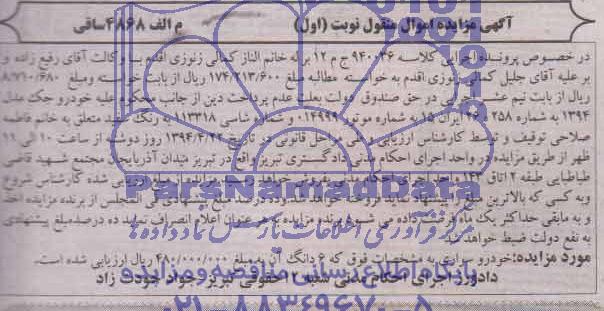 آگهی مزایده اموال منقول نوبت (اول) م الف ۴۸۶۸ ساقی
در خصوص پرونده اجرایی کلاسه ۹۴۰۰۳۶ ج م ۱۲ برله خانم الناز کمالی زنوزی اقدم با وکالت آقای رفیع زاده و
برعلیه آقای جلیل کمالی زنوزی اقدم به خواسته مطالبه مبلغ ۱۷۴/۲۱۳/۶۰۰ ریال از بابت خواسته ومبلغ ۸/۷۶۰/۶۸۰
ریال از بابت نیم عشر در حق صندوق دولت بعلت عدم پرداخت دین از جانب محکوم علیه خودرو جک مدل
۱۳۹۴ به شماره ۲۵۸ ۴۶ ایران ۱۵ به شماره موتور ۰۱۴۹۹۹ و شماره شاسی ۰۱۳۳۱۸ به رنگ سفید متعلق به خانم فاطمه
صلاحی توقیف و توسط کارشناس ارزیابی مراحل قانونی در تاریخ ۱۳۹۴/۴/۲۲ روز دوشنبه از ساعت ۱۰ الی ۱۱
ظهر از طریق مزایده در واحد اجرای احکام مدنی دادگستری تبریز واقع در تبریز میدان آذربایجان مجتمع شهید قاضی
طباطبایی طبقه ۲ اتاق ۱۴۲ واحد اجرای احکام مدنی بفروش خواهد مزایده از مبلغ ارزیابی شده کارشناس شروع
وبه کسی که بالاترین مبلغ را پیشنهاد نماید فروخته خواهد شد وده درصد مبلغ پیشنهادی فی المجلس از برنده مزایده اخذ
و به مابقی حداکثر یک ماه فرصت داده می شود برنده مزایده به هر عنوان اعلام انصراف نماید ده درصد مبلغ پیشنهادی
به نفع دولت ضبط خواهد شد
مورد مزایده: خودرو سواری به مشخصات فوق که ۶ دانگ آن به مبلغ ۴۸۰/۰۰۰/۰۰۰ ریال ارزیابی شده است.
دادورز اجرای احکام مدنی شعبه ۱۲ حقوقی تبریز جواد جودت زاد
ParsNamadData
مرکز فرآوری اطلاعات پارس نماد داده ها
پایگاه اطلاع رسانی مناقصه و مزایده
۰۲۱-۸۸۳۴۹۶۷۰-۵